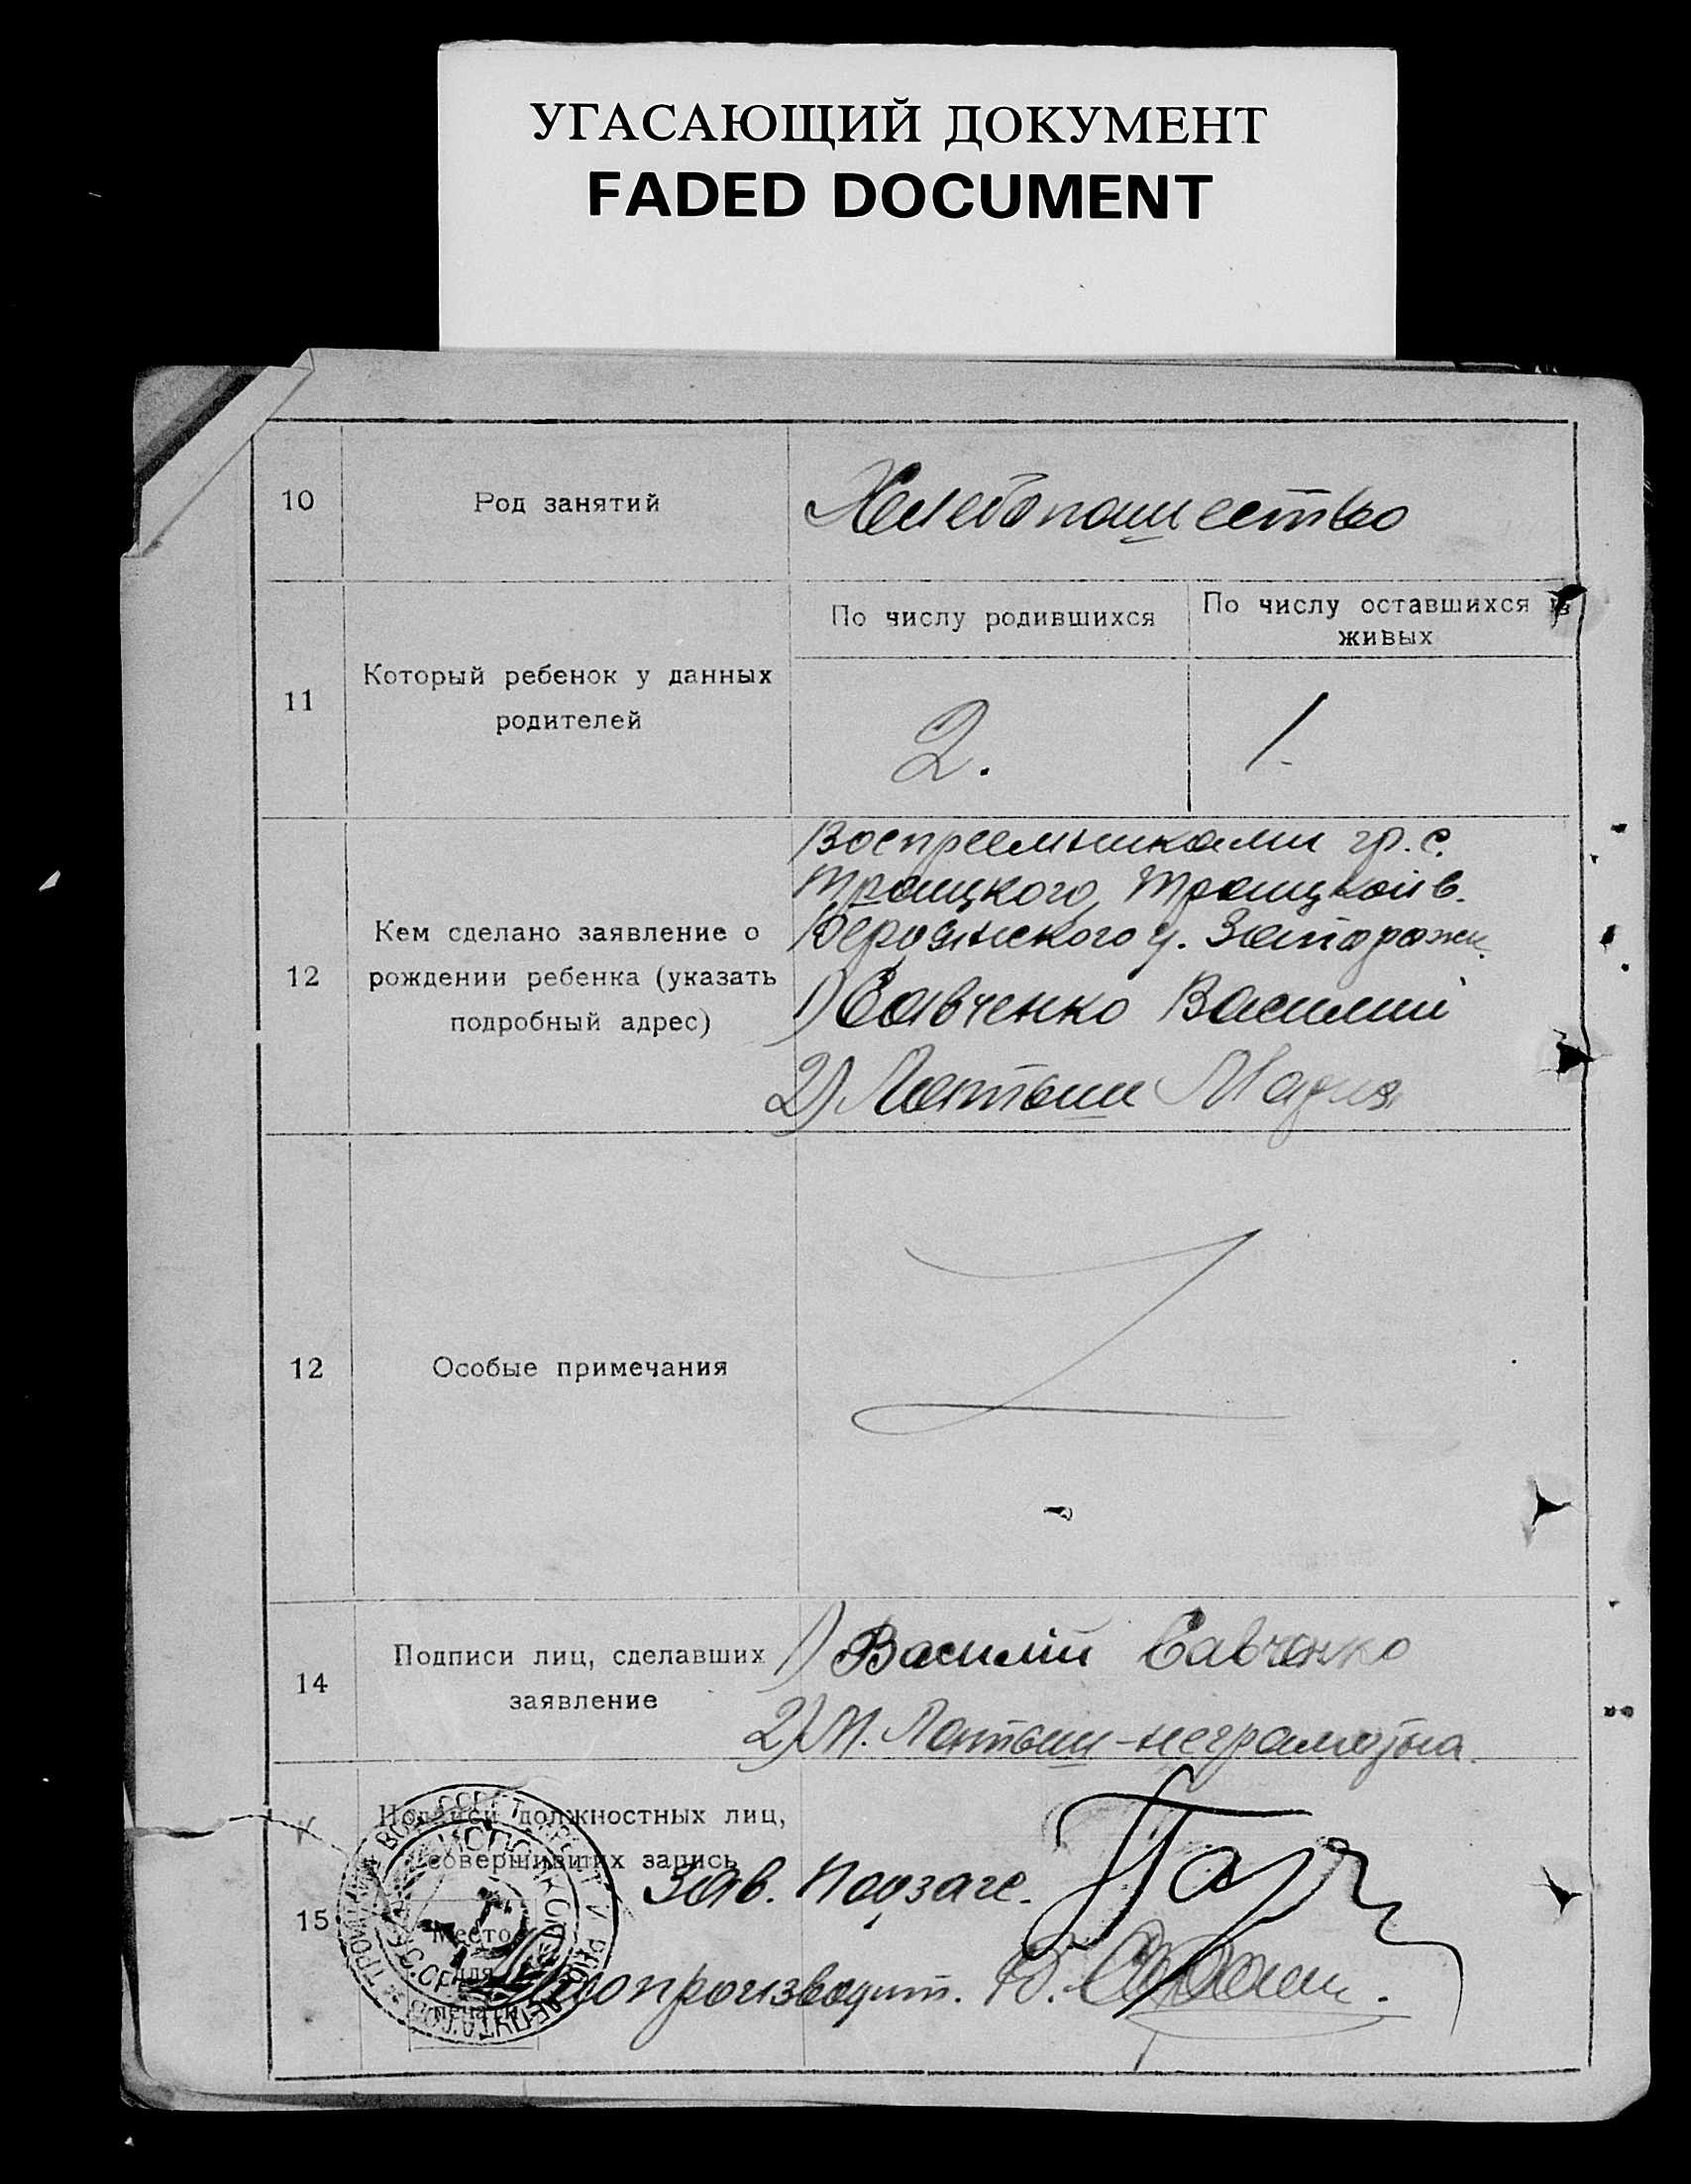 УГАСАЮЩИЙ ДОКУМЕНТ
FADED DOCUMENT
10
Род занятий
Хлебопашество
11
Который ребенок у данных
родителей
По числу родившихся
По числу оставшихся в
живых
2.
1.
12
Кем сделано заявление о
рождении ребенка (указать
подробный адрес)
Восприемниками гр. с.
Троицкого, Троицкой в.
Бердянского у. Запорожск.
1) Савченко Василий
2) Лантвин Мария
12
Особые примечания
14
Подписи лиц, сделавших
заявление
1) Василий Савченко
2) М. Лантвин - неграмотна.
15
Подписи должностных лиц,
совершивших запись
Место
для
печати
Зав. Подзагс.
Делопроизводит.